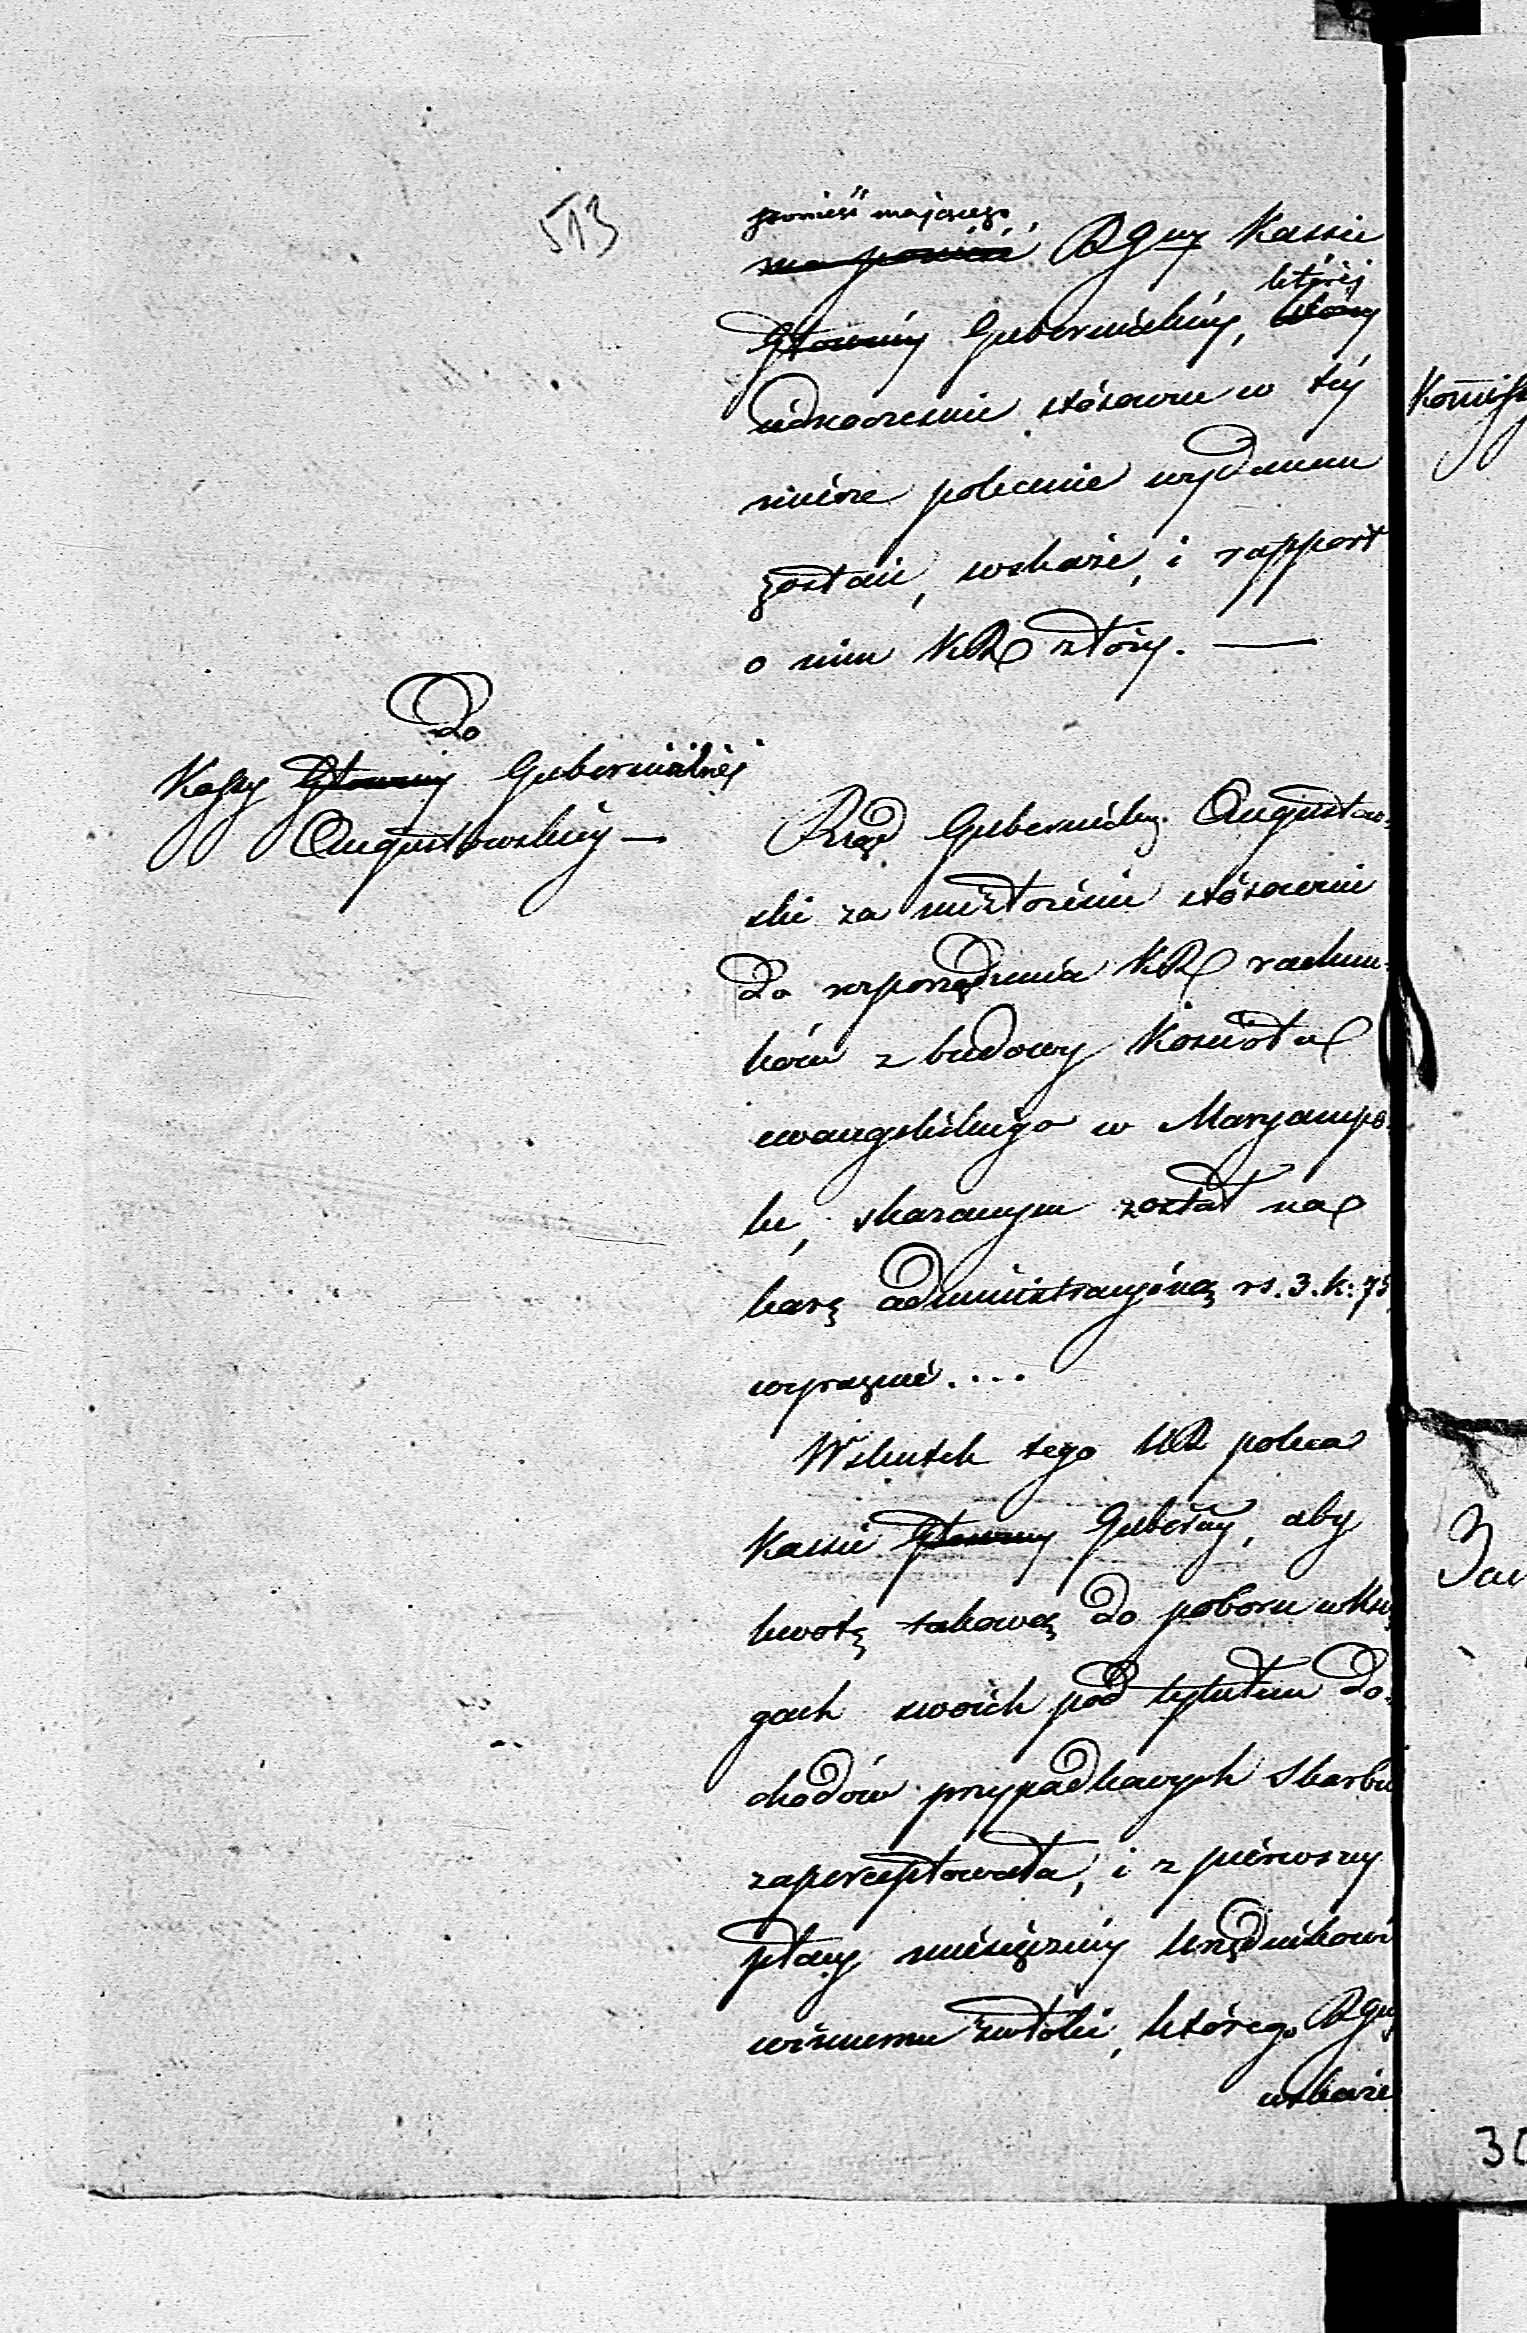 513
ponieść mającego
ma ponieść RGny Kassie
której
Głównéj Gubernialnéj, któréj
jednocześnie stósowne w téj
mierze polecenie wydanem
zostaie, wskaże, i rapport
o tém KR złoży. —
Do
Kassy Głównéj Gubernialnéj
Augustowskiéj —
Rząd Gubernialny Augustow-
ski za niezłożenie stósownie
do rozporządzenia KR rachun-
ków z budowy Kościoła
ewangelickiego w Maryampo-
lu, skazanym został na
karę administracyjną rs. 3. k: 75
wyraźnie....
Wskutek tego KR poleca
Kassie Głównéj Guberniéj, aby
kwotę takową do poboru w Xię
gach swoich pod tytułem do-
chodów przypadkowych Skarbu
zaperceptowała, i z pierwszéj
płacy miesięcznéj Urzędnikowi
winnemu, którego RGny
wskaże
Komiss
30